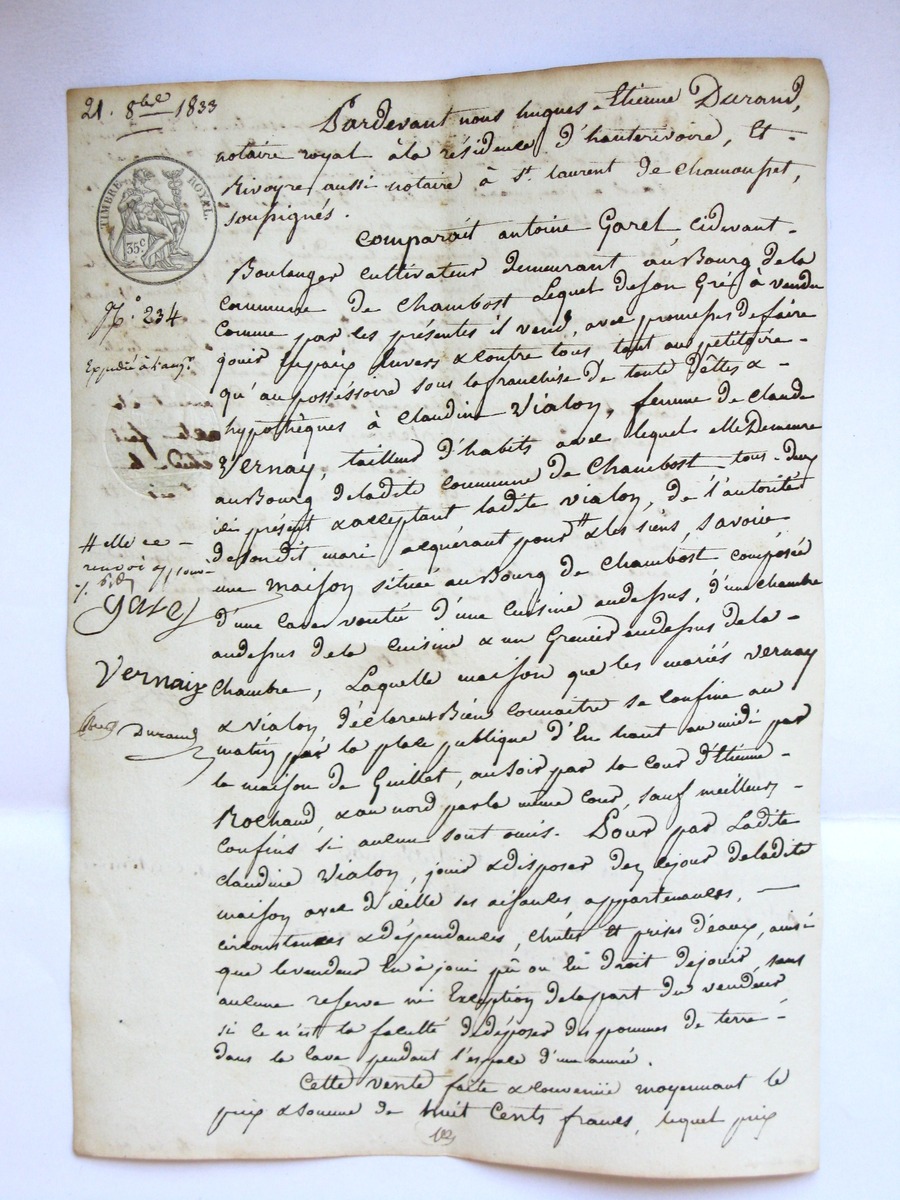 21. 8bre 1833
TIMBRE ROYAL.
35c.
No. 234
Expédié à l'acqr.
# elle ce
renvoi approuvé
Garel
Vernaix
Durand
Pardevant nous hugues Etienne Durand,
notaire royal à la résidence d'hauterivoire, Et
Rivoyre aussi notaire à St. laurent de Chamousset,
soussignés.
Comparait antoine Garel cidevant
Boulanger cultivateur demeurant au Bourg de la
commune de Chambost Lequel de son Gré, à vendu
comme par les présentes il vend, avec promesses de faire
jouir En paix Envers & contre tous tant au petitoire
qu'au posséssoire sous la franchise de toute dêttes &
hypothèques à Claudine Vialon, femme de Claude
Vernay, tailleur d'habits avec lequel elle Demeure
au Bourg de ladite commune de Chambost tous-deux
ici présent & acceptant ladite vialon, de l'autorité
de son dit mari acquérant pour # & les siens, savoir
une maison située au Bourg de Chambost composée
d'une cave voutée d'une cuisine audessus, d'une chambre
audessus de la cuisine & un Grenier audessus de la
Chambre, Laquelle maison que les mariés vernay
& vialon déclarent Bien connaitre se confine au
matin par la place publique d'En haut au midi par
la maison de Guillot, au soir par la Cour d'Etienne
Rochand, & au nord par la même cour, sauf meilleurs
confins si aucun sont omis. Pour par Ladite
claudine Vialon, jouir & disposer dez cejour de ladite
maison avec d'icelle ses aisances appartenances,
circonstances & dépendances, chutes Et prises d'eaux, ainsi
que le vendeur En à joui pû ou Eu Droit de jouir, sans
aucune reserve ni Exception de la part du vendeur
si ce n'est la faculté de déposer des pommes de terre
dans la cave pendant l'espace d'une année.
Cette vente faite & convenue moyennant le
prix & somme de huit Cents francs, lequel prix